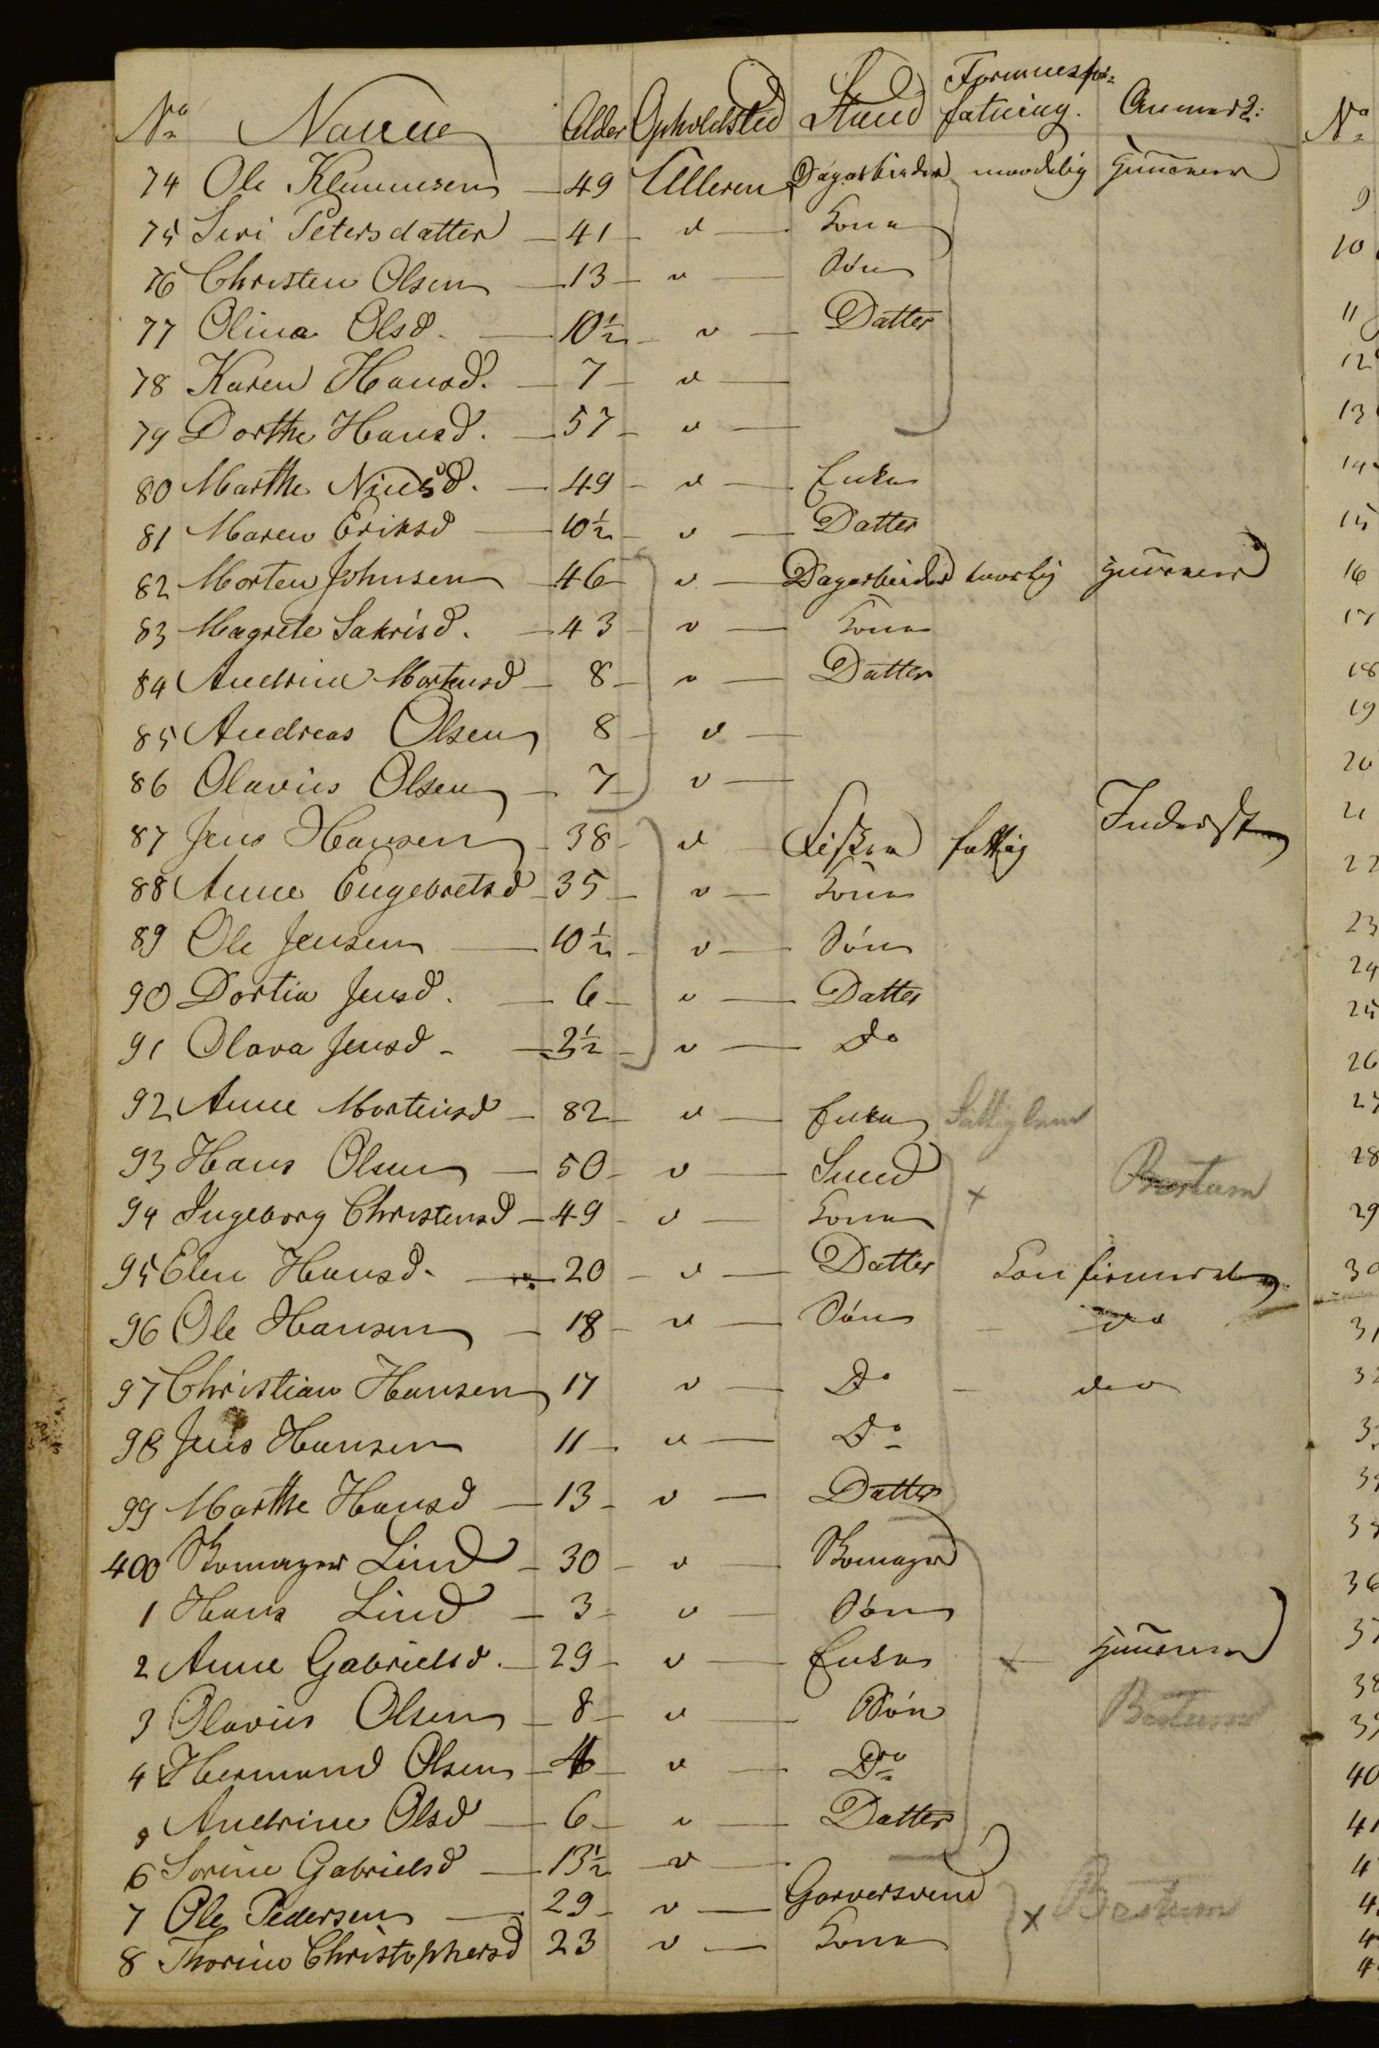 No Navne Alder Opholdsted Stand Formuesforfatning. Anmærk:
74 Ole Klemmesen — 49 Ulleren Dagarbeider maadelig Huusmand
75 Siri Petersdatter — 41 — v — Kone
76 Christen Olsen — 13 — v — Søn
77 Olina Olsd. — 10½ — v — Datter
78 Karen Hansd. — 7 — v —
79 Dorthe Hansd. — 57 — v —
80 Marthe Nielsd. — 49 — v — Enke
81 Maren Eriksd — 10½ — v — Datter
82 Morten Johnsen — 46 — v — Dagarbeider Huusmand
83 Magrete Sakrisd. — 43 — v — Kone
84 Andrine Mortensd — 8 — v — Datter
85 Andreas Olsen 8 — v —
86 Olavius Olsen — 7 — v —
87 Jens Hansen — 38 — v — Fisker fattig Inderst
88 Anne Engebretsd — 35 — v — Kone
89 Ole Jensen — 10½ — v — Søn
90 Dortia Jensd. — 6 — v — Datter
91 Olava Jensd — 2½ — v — Do
92 Anne Mortensd — 82 — v — Enke Fattiglem
93 Hans Olsen — 50 — v — Smed x
94 Ingeborg Christensd — 49 — v — Kone
95 Elen Hansd. — 20 — v — Datter Confirmerede
96 Ole Hansen — 18 — v — Søn — do
97 Christian Hansen 17 v — Do — do
98 Jens Hansen 11 — v — Do
99 Marthe Hansd — 13 — v — Datter
400 Skomager Lind — 30 — v — Skomager
1 Hans Lind — 3 — v — Søn
2 Anne Gabrielsd. — 29 — v — Enke x Huusmand
3 Olavius Olsen — 8 — v — Søn
4 Hermand Olsen — 4 — v — Do
5 Andrine Olsd — 6 — v — Datter
6 Sorine Gabrielsd — 13½ — v —
7 Ole Pedersen — 29 — v — Garversvend x
8 Thorine Christophersd 23 v — Kone
No
9
10
11
12
13
14
15
16
17
18
19
20
21
22
23
24
25
26
27
28
29
30
31
32
36
37
38
39
40
41